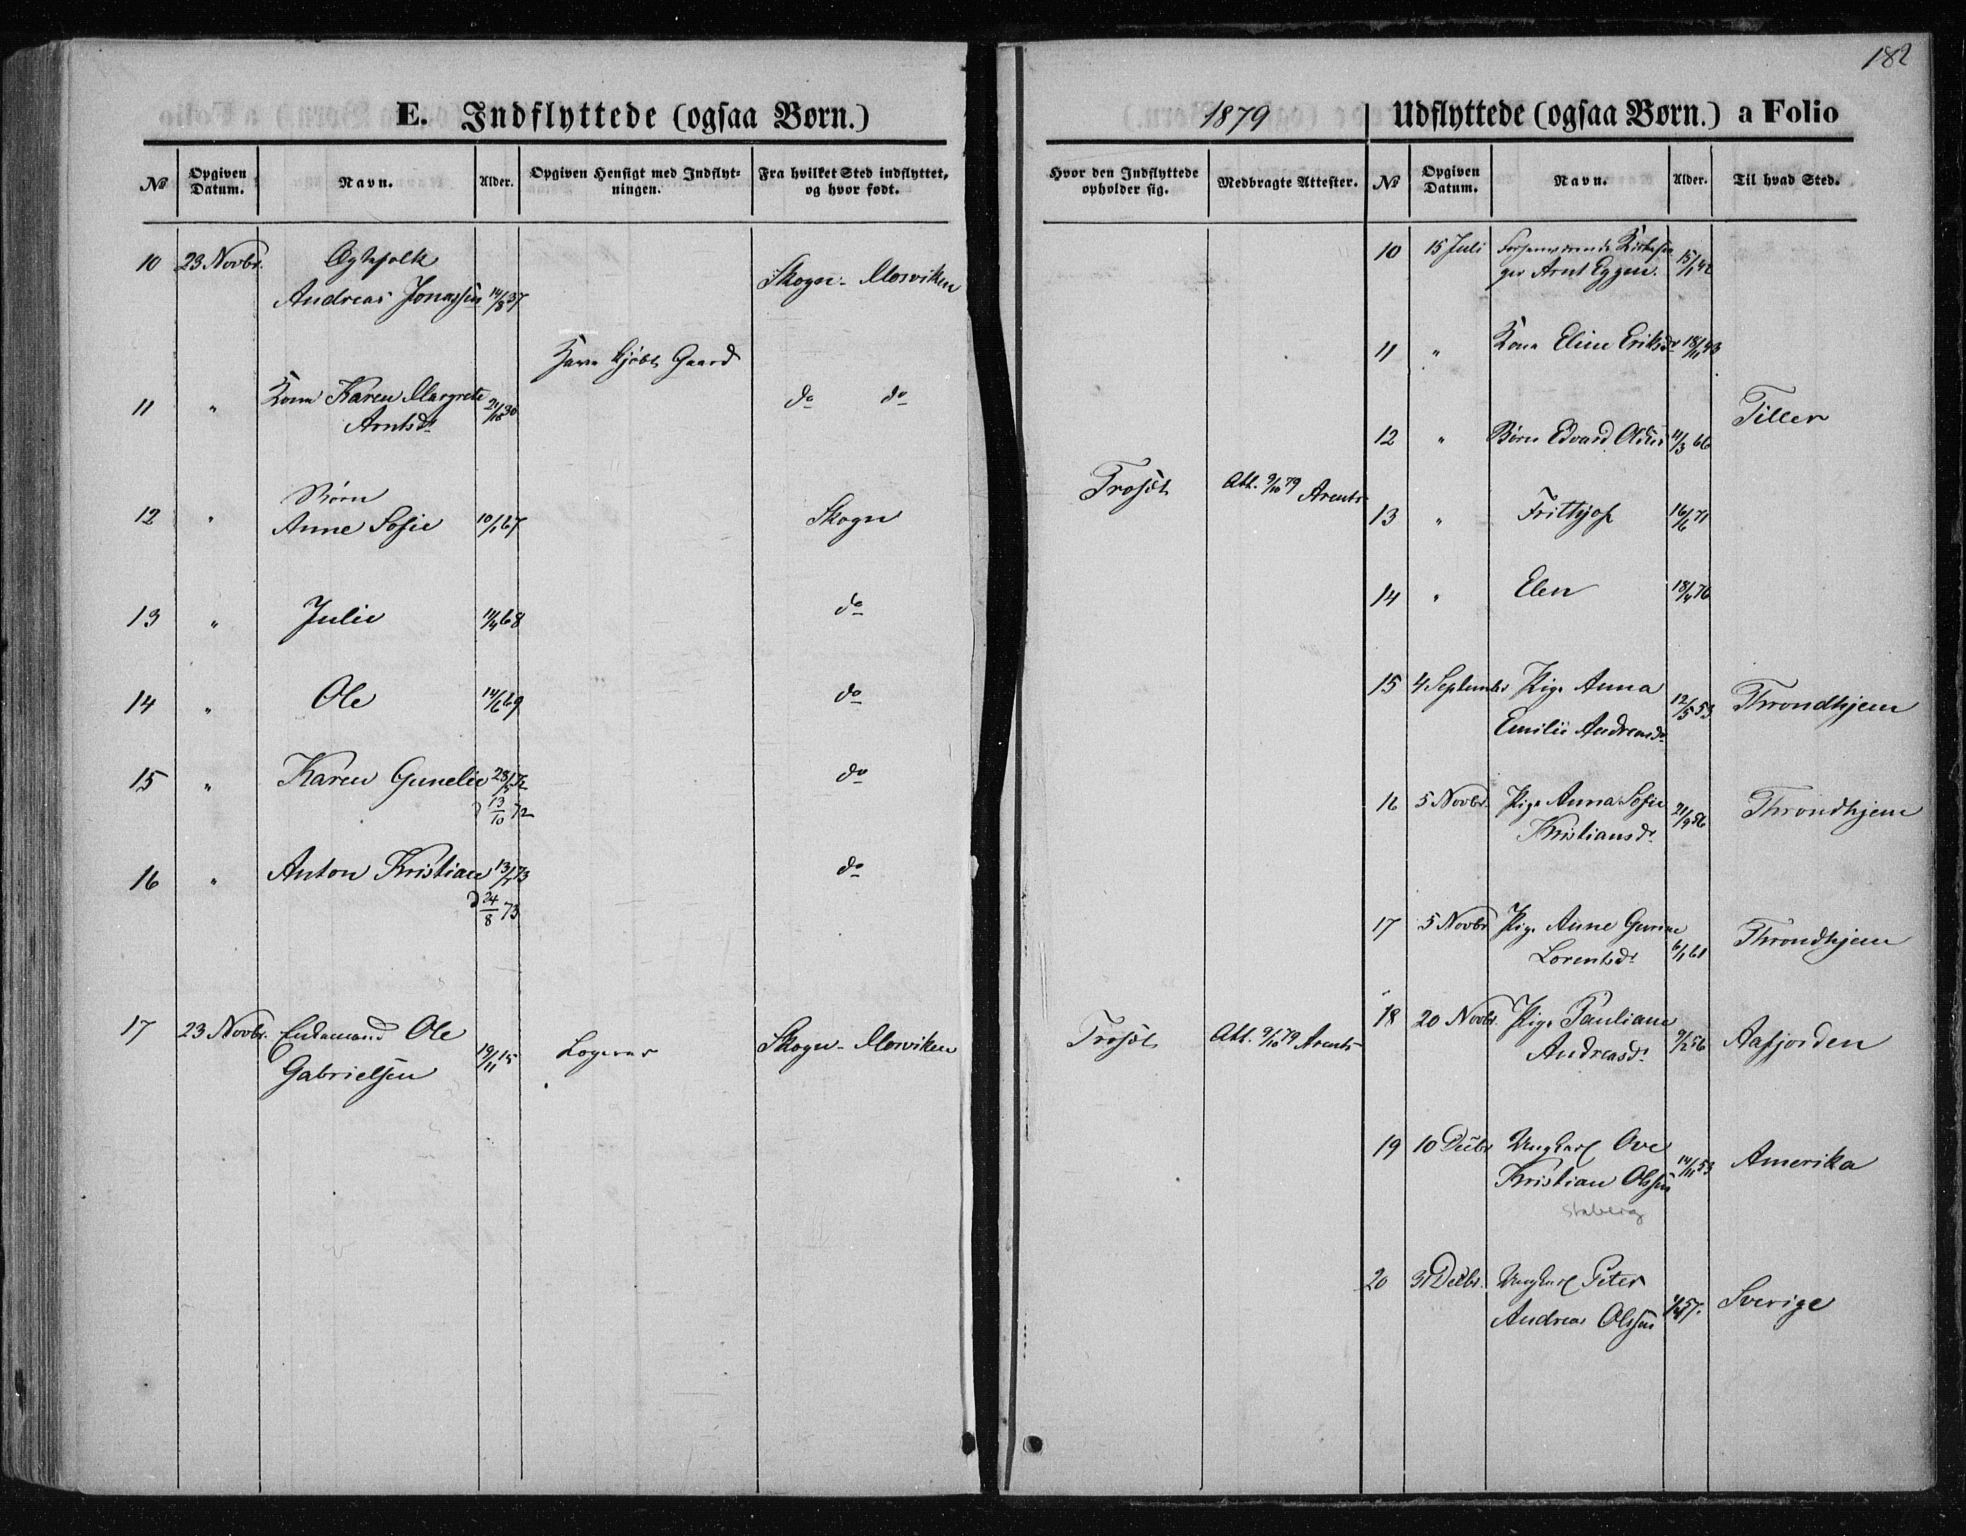 182
E. Indflyttede (ogsaa Børn.)
No Opgiven Datum. Navn. Alder. Opgiven Hensigt med Indflytningen. Fra hvilket Sted indflyttet, og hvor født.
10 23 Novbr. Ægtefolk
Andreas Jonassen 14/8 37 Skogn - Mosviken
Have kjøbt Gaard
11 " Kone Karen Margrete
Arntsdr 30 do do
12 " Børn
Anne Sofie 10/1 67 Skogn
13 " Julie 14/4 68 do
14 " Ole 14/6 69 do
15 " Karen Gunelie 28/5 72 do
13/10 72
16 " Anton Kristian 13/7 73 do
24/8 73
17 23 Novbr. Enkemand Ole
Gabrielsen 19/11 15 Logerer Skogn - Mosviken
1879
Hvor den Indflyttede opholder sig. Medbragte Attester.
Trøset Att. 9/10 79 Arents
Trøset Att. 9/10 79 Arents
Udflyttede (ogsaa Børn.) a Folio
No Opgiven Datum. Navn. Alder. Til hvad Sted.
10 15 Juli Forhenværende Kirkesan
ger Arnt Eggen. 15/1 42
11 " Kone Eline Eriksdr 18/11 43
Tiller
12 " Børn Edvard Oldus 11/3 66
13 " Frithjof 16/6 71
14 " Elen 18/4 76
15 4 Septembr Pige Anna
Emilie Andreasdr 12/5 53 Throndhjem
16 5 Novbr. Pige Anna Sofie
Kristiansdr 21/9 56 Throndhjem
17 5 Novbr Pige Anne Gurine
Lorentsdr 6/1 61 Throndhjem
18 20 Novbr. Pige Pauliane
Andreasdr 9/2 56 Aafjorden
19 10 Decbr Ungkarl Ove
Kristian Olssen 14/11 53 Amerika
Staberg
20 31 Decbr. Ungkarl Peter
Andreas Olssen 57. Sverige